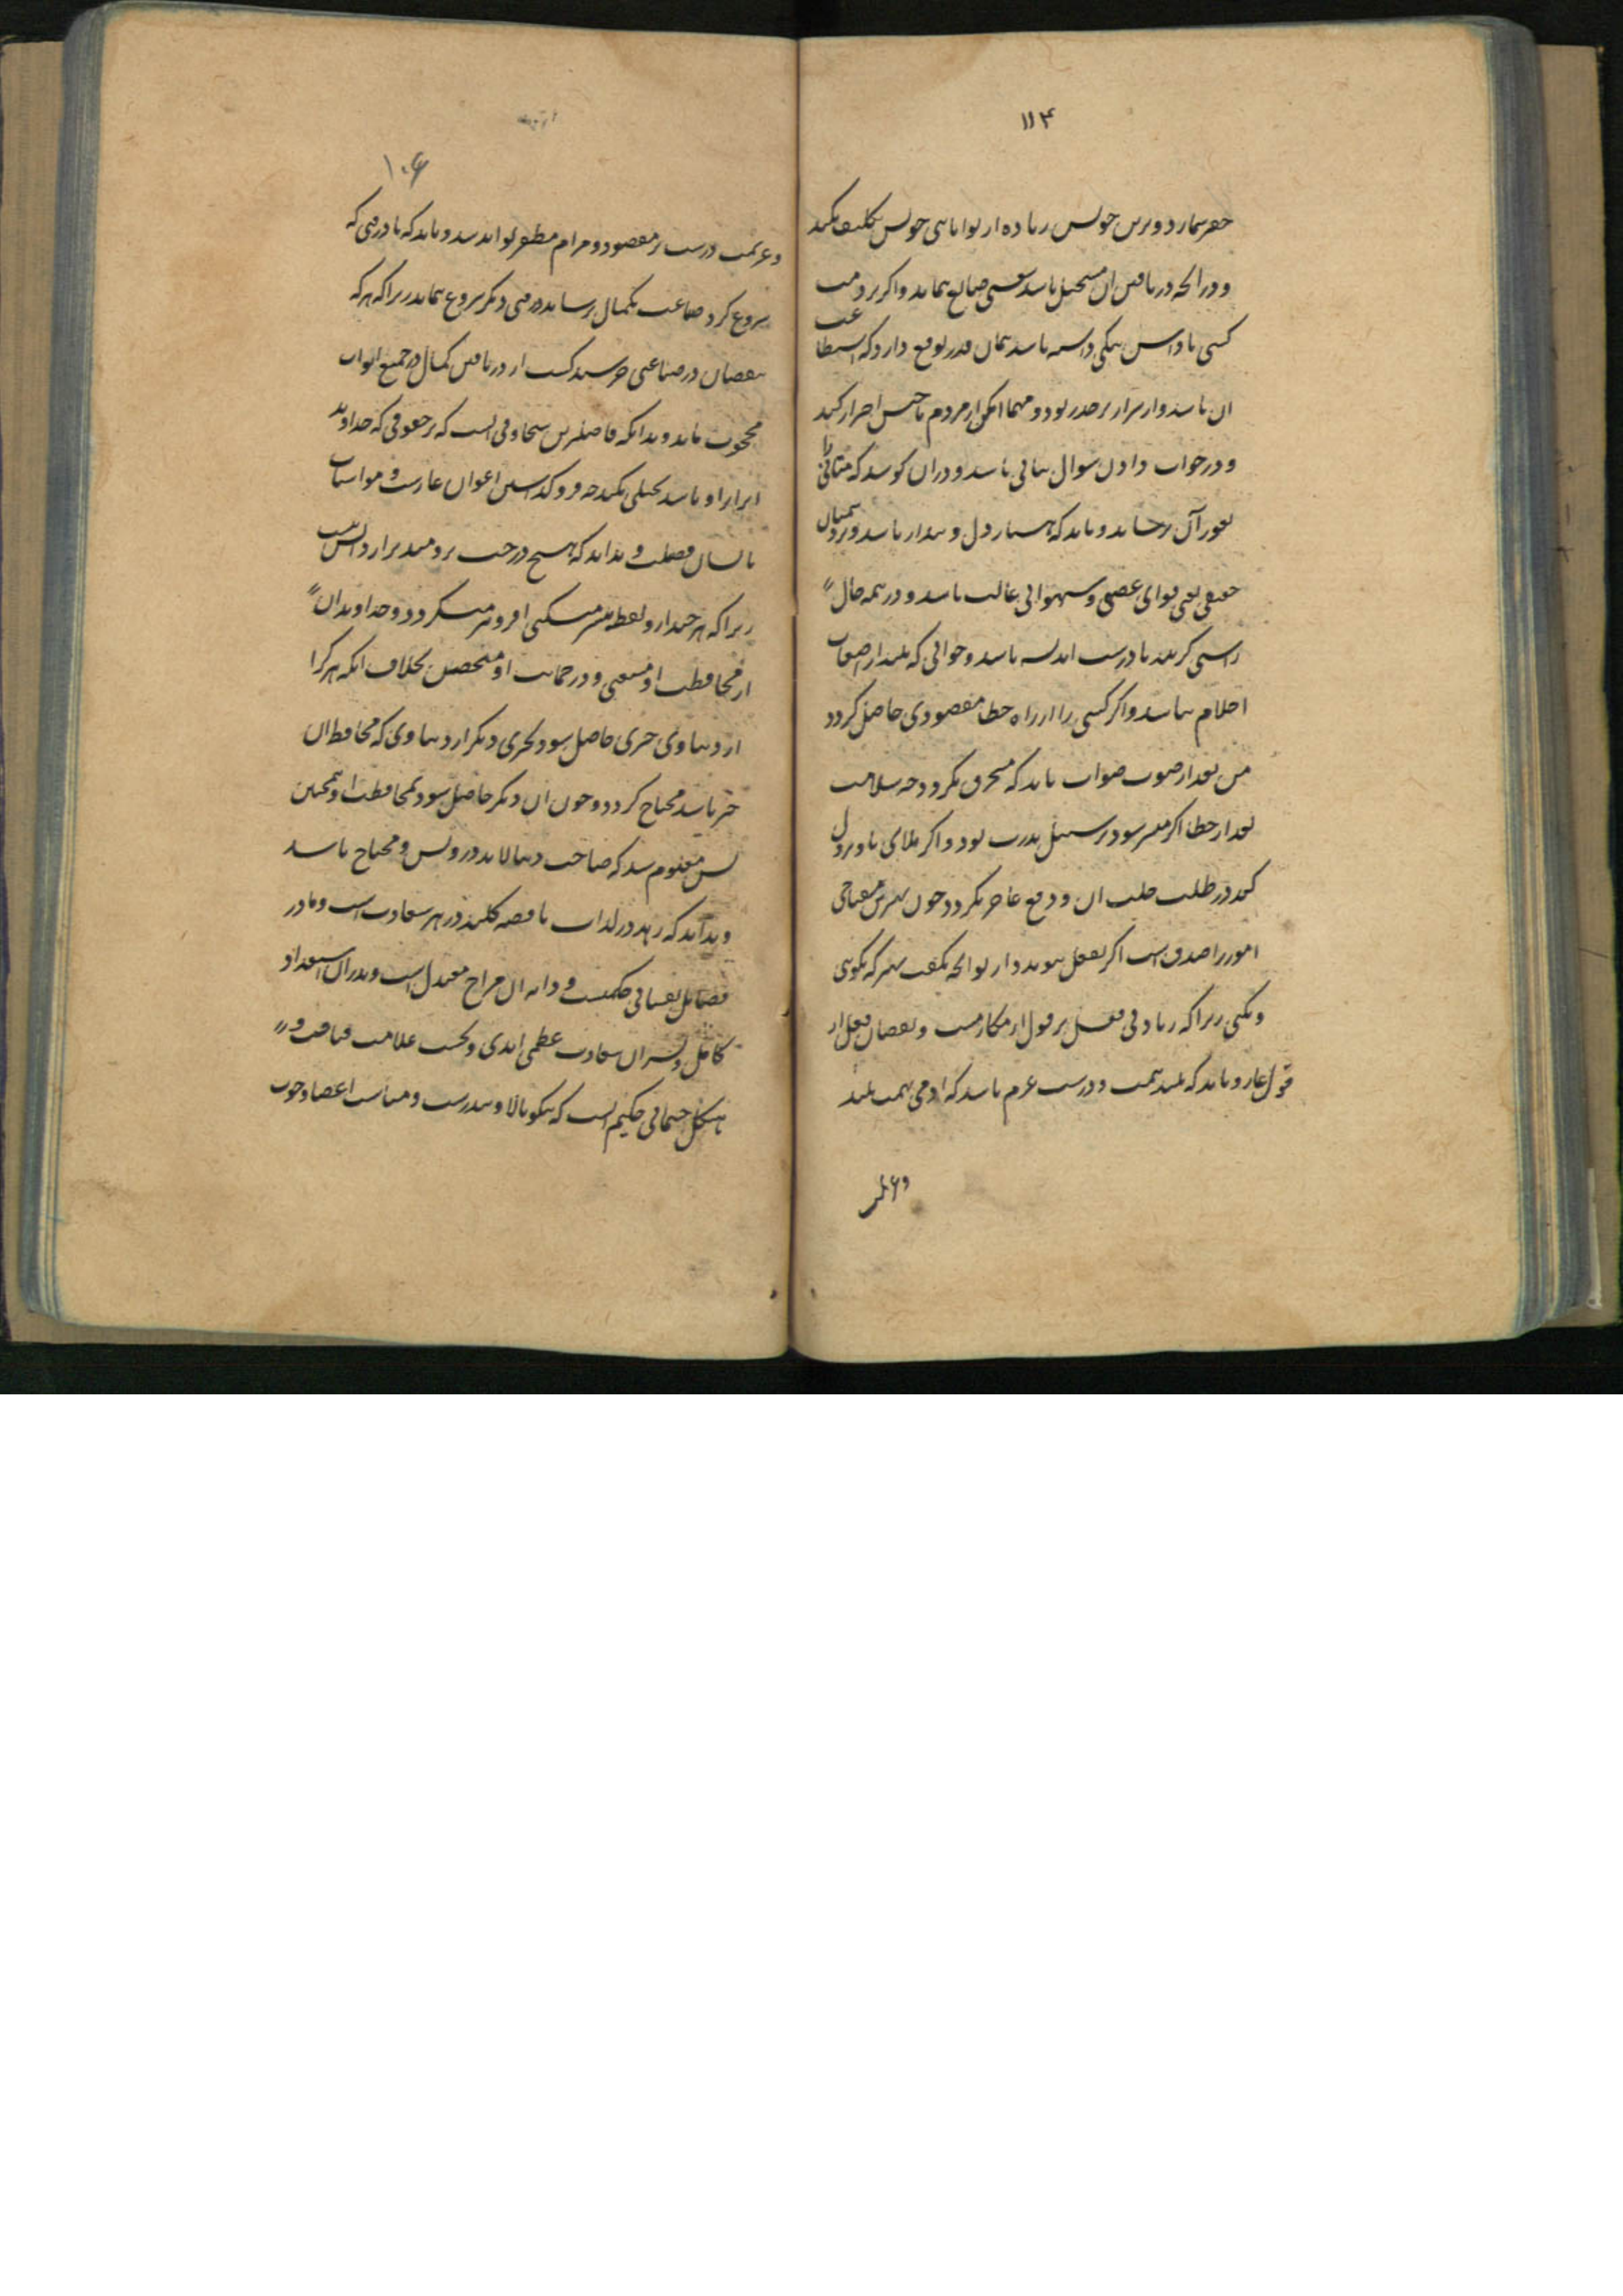 ۱۱۴
حقیر شمارد و بر تن خویش زیاده از توانایی خویش تکلیف نکند
و در آنچه دریافتن آن مستحیل باشد سعی ضایع ننماید و اگر بر ذمت
کسی پاداش نیکی داشته باشد همان قدر توقع دارد که استطاعت
آن باشد و از شرار بر حذر بود و مهما امکن از مردم احتراز کند
و در جواب دادن سوال باشد و در آن کوشد که را
بغور آن برساند و باید که هشیار دل و بیدار باشد و بر دشمنان
حقیقی یعنی قوای غضبی و شهوانی غالب باشد و در همه حال
راستی گزیند با درست اندیشه باشد و خوابی که بیند از اضغاث
احلام نباشد و اگر کسی را از راه خطا مقصودی حاصل گردد
من بعد از صوب صواب باید که منحرف نگردد چه سلامت
بعد از خطا اگر میسر شود بر سبیل ندرت بود و اگر بلای باو نزول
کند در طلب جلب آن و دفع عاجز نگردد چون بهترین
امور را صدق است اگر بفعل پیوندد از توانچه نگفت بهتر که نگویی
و نکنی زیرا که زیادتی فعل بر قول از مکارمست و نقصان فعل از
قول عار و باید که بلند همت و درست عزم باشد که آدمی بهمت بلند
و عزیمت
۱۰۶
و عزیمت درست بر مقصود و مرام مظفر تواند شد و باید که تا در فنی که
شروع کرد صناعت بکمال نرساند در فنی دیگر شروع ننماید زیرا که هر که
بنقصان در صناعتی خرسند گشت از دریافتن کمال در جمیع ابواب
محجوب ماند و بداند که فاضلترین سخاوتی آنست که بر حقوقی که خداوند
ابرار او باشد بخیلی نکند چه فرو گذاشتن اعوان عارست و مواسات
با ایشان فضیلت و بداند که هیچ درخت برومندتر از دانش نیست
زیرا که هر چند از و بیشتر میکنی افزونتر میگردد و خداوند آن
از محافظت او مستغنی و در حمایت او متحصن بخلاف آنکه هر کرا
از دنیاوی چیزی حاصل شود بچیزی دیگر از دنیاوی که محافظ آن
چیز باشد محتاج گردد و چون آن دیگر حاصل شود بمحافظت او همچنین
پس معلوم شد که صاحب دنیا لابد درویش و محتاج باشد
و بداند که زهد در لذات ناقصه کلید در هر سعادتست و مادر
فضایل نفسانی حکمتست و دایه آن مزاج معتدلست و پدر آن استعداد
کامل و پسر آن سعادت عظمی ابدی و نخست علامت قیافت در
هیکل جسمانی حکیم آنست که نیکو بالا و تندرست و متناسب اعضا و خوب